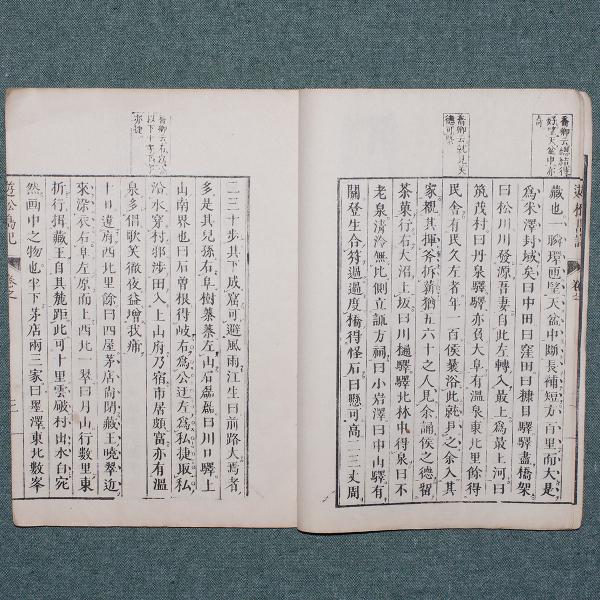 喬卿云總結得
好望天盆中亦
奇
藏也一瞬環匝望天盆中斷長補短方百里而大是
為米澤封域矣曰中田曰窪田曰糠目驛驛盡橋架
曰松川川發源吾妻自此左轉入最上為最上河曰
筑茂村曰丹泉驛驛亦負大阜有溫泉東北里餘得
民舍有民久左者年一百侯曩浴此就戸之余入其
喬卿云就見天
德可
家覩其揮斧拆薪猶五六十之人見余誦侯之德留
茶菓行右大沼上坂曰川樋驛驛北林中得泉曰不
老泉清泠無比側立諏方祠曰小岩澤曰中山驛有
關登生合符過過度橋得怪石曰懸可高二三丈周
二三十步其下成窟可避風雨江生曰前路大焉者
多是其兒孫右阜樹蓁蓁左山石磊磊曰川口驛上
山南界也曰石曽根得岐右為公迂左為私捷取私
沿水穿村邨涉田入上山府乃宿市居頗富亦有溫
泉多倡歌笑徹夜益增我痛
十日違府西北里餘曰四屋茅店尚閉藏王曉翠近
來滲衣右阜左原而上西北一翠曰月山行數里東
折行揖藏王自其麓距此可十里雲破村出水白宛
然画中之物也半下茅店兩三家曰墨澤東北數峯
遊松島記 卷之 三